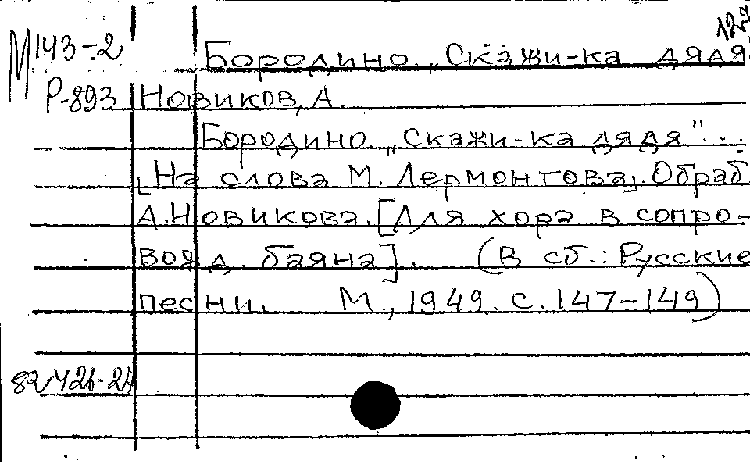 М 143-2 Бородино „Скажи-ка дядя
Р-893 Новиков, А.
Бородино. „Скажи-ка дядя"...
[На слова М. Лермонтова]. Обраб
А. Новикова. [Для хора в сопро-
вожд. баяна]. (В сб.: Русские
песни. М., 1949. с. 147-149)